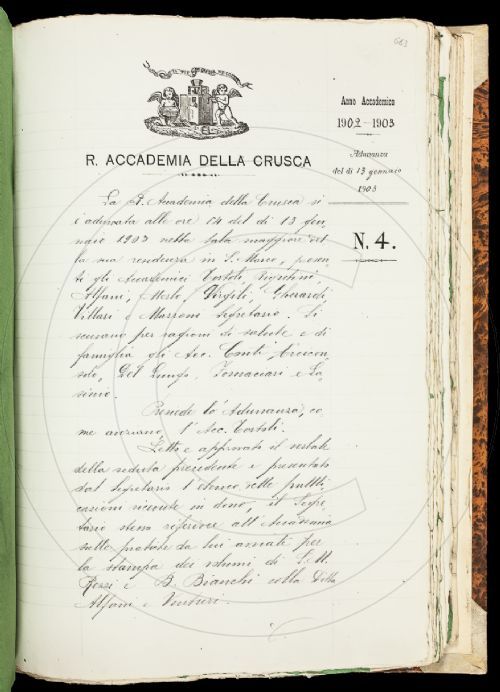 663
R. ACCADEMIA DELLA CRUSCA
Anno Accademico
1902-1903
Adunanza
del dì 13 gennaio
1903
N. 4.
La R. Accademia della Crusca si
è adunata alle ore 14 del dì 13 gen-
naio 1903 nella sala maggiore del-
la sua residenza in S. Marco, presen-
ti gli Accademici Tortoli,
Alfani, Merlo, Virgili, Gherardi,
Villari e Mazzoni segretario. Si
scusano per ragioni di salute e di
famiglia gli Acc. Conti,
Del Lungo, Fornaciari e La-
sinio.
Presiede l'Adunanza, co-
me anziano, l'Acc. Tortoli.
Letto e approvato il verbale
della seduta precedente e presentato
dal segretario l'elenco delle pubbli-
cazioni ricevute in dono, il Segre-
tario stesso riferisce all'Adunanza
sulle pratiche da lui avviate per
la stampa dei volumi di
Rossi e B. Bianchi colla Ditta
Alfani e Venturi.